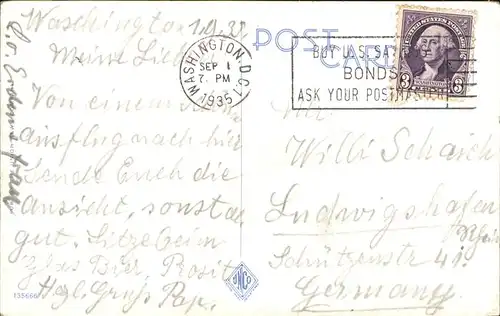 Washington 1.9.35
Meine Lieben
Von einem
Ausflug nach hier
sende Euch die
Ansicht, sonst
gut. Sitze beim
Glas Bier, Prosit
Hzl. Gruß Pap.
POST CARD
WASHINGTON, D.C. 1
SEP 1
7. PM
1935
BUY U.S. SAVINGS
BONDS
ASK YOUR POSTMASTER
UNITED STATES POSTAGE
3 3
Willi Schaich
Ludwigshafen
Rhein
Schützenstr 41.
Germany
135666